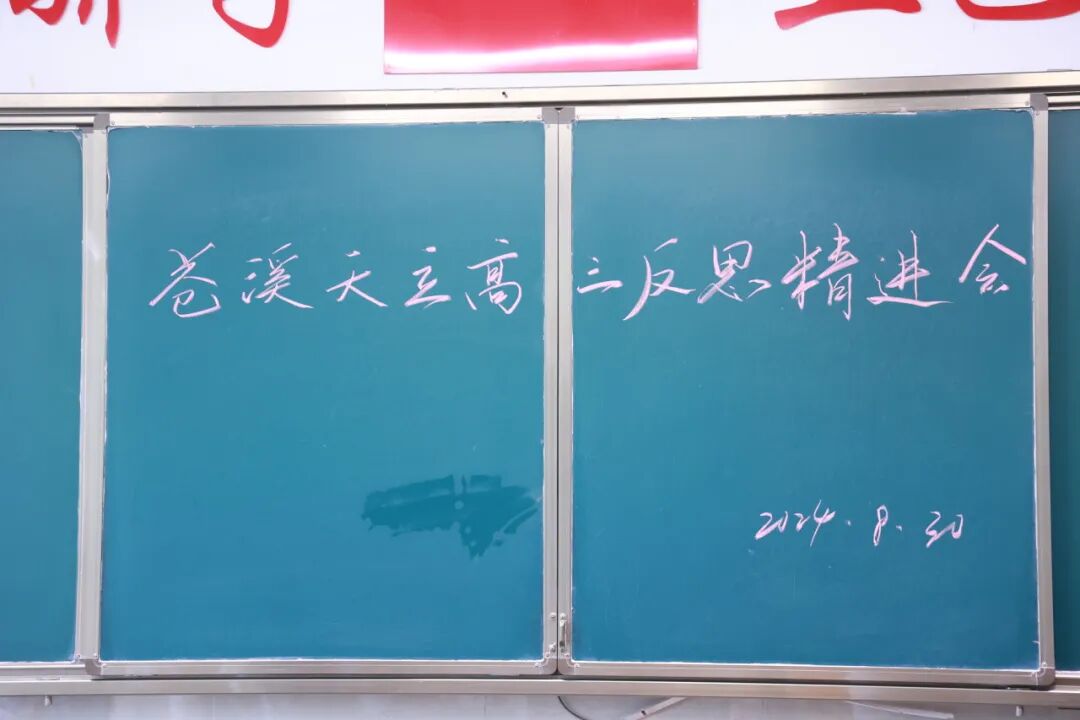 苍溪天立高三反思精进会
2024.8.30